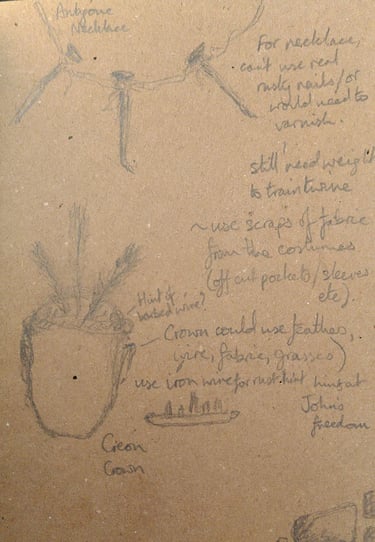 Antigone
Necklace
For necklace,
can't use real
rusty nails/or
would need to
varnish.
still need weight
to train twine
~ use scraps of fabric
from the costumes
(off cut pockets/sleeves
etc).
Hint of
barbed wire?
Crown could use feathers,
wire, fabric, grasses)
use iron wire for rust hint
hint at
John's
freedom
Creon
Crown